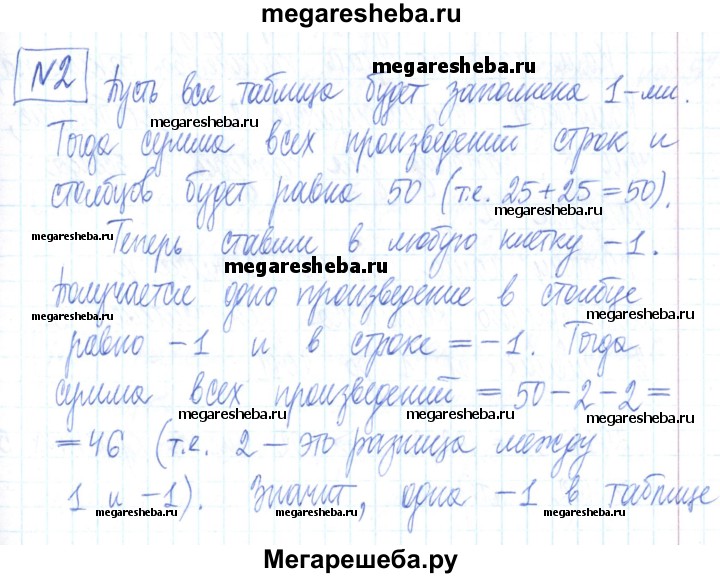 megaresheba.ru
№2 Пусть вся таблица будет заполнена 1-ми.
megaresheba.ru
Тогда сумма всех произведений строк и
megaresheba.ru
megaresheba.ru
столбцов будет равна 50 (т.е. 25+25=50).
megaresheba.ru
Теперь ставим в любую клетку -1.
megaresheba.ru
megaresheba.ru
megaresheba.ru
Получается одно произведение в столбце
megaresheba.ru
megaresheba.ru
равно -1 и в строке = -1. Тогда
megaresheba.ru
сумма всех произведений = 50-2-2=
megaresheba.ru
megaresheba.ru
=46 (т.е. 2 – это разница между
1 и -1). Значит, одна -1 в таблице
megaresheba.ru
megaresheba.ru
megaresheba.ru
Мегарешеба.ру